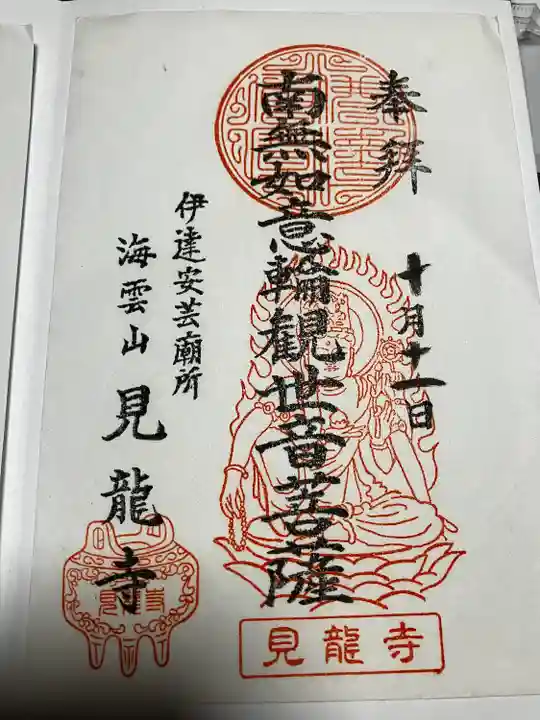 奉拜
十月十一日
南無如意輪観世音菩薩
伊達安芸廟所
海雲山見龍寺
見龍寺